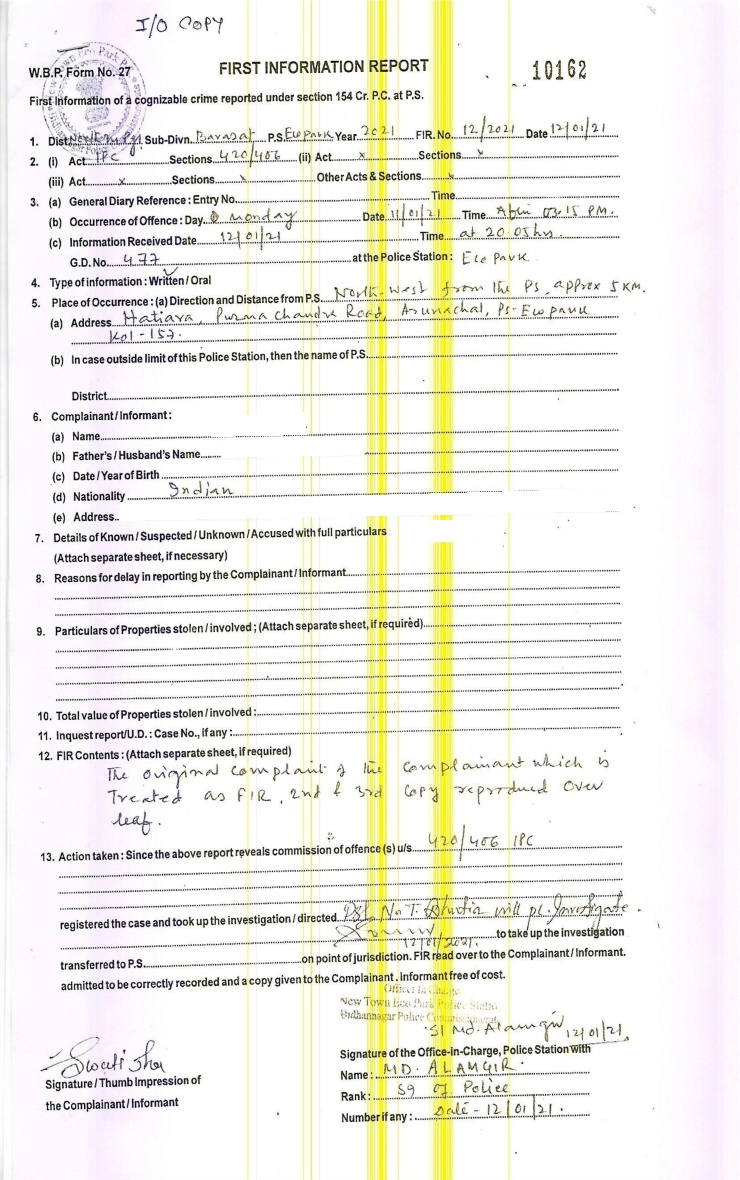 I/O COPY
W.B.P. Form No. 27
FIRST INFORMATION REPORT
10162
First Information of a cognizable crime reported under section 154 Cr. P.C. at P.S.
1. Dist. Sub-Divn. Barasat P.S. Eco park Year 2021 FIR. No. 12/2021 Date 12/01/21
2. (i) Act IPC Sections 420/406 (ii) Act x Sections x
(iii) Act x Sections x Other Acts & Sections x
3. (a) General Diary Reference : Entry No. Time
(b) Occurrence of Offence : Day Monday Date 11/01/21 Time 03:15 PM.
(c) Information Received Date 12/01/21 Time at 20.05 hrs.
G.D. No. 477 at the Police Station : Eco Park
4. Type of information : Written / Oral
5. Place of Occurrence : (a) Direction and Distance from P.S. North-West from the PS, approx 5 KM.
(a) Address Hatiara, Purna Chandra Road, Arunachal, Ps- Eco park
Kol-157.
(b) In case outside limit of this Police Station, then the name of P.S.
District
6. Complainant / Informant :
(a) Name
(b) Father's / Husband's Name
(c) Date / Year of Birth
(d) Nationality Indian
(e) Address..
7. Details of Known / Suspected / Unknown / Accused with full particulars
(Attach separate sheet, if necessary)
8. Reasons for delay in reporting by the Complainant / Informant
9. Particulars of Properties stolen / involved ; (Attach separate sheet, if required)
10. Total value of Properties stolen / involved :
11. Inquest report/U.D. : Case No., if any :
12. FIR Contents : (Attach separate sheet, if required)
The original complaint of the complainant which is
Treated as FIR, 2nd & 3rd copy reproduced over
leaf.
13. Action taken : Since the above report reveals commission of offence (s) u/s. 420/406 IPC
registered the case and took up the investigation / directed PSI N. T. Bhutia will pl. Investigate.
12/01/2021. to take up the investigation
transferred to P.S. on point of jurisdiction. FIR read over to the Complainant / Informant.
admitted to be correctly recorded and a copy given to the Complainant . Informant free of cost.
Officer in Charge
New Town Eco Park Police Station
Bidhannagar Police Commissionerate
SI Md. Alamgir 12/01/21
Signature of the Office-in-Charge, Police Station with
Swati Shaw
Signature / Thumb Impression of
the Complainant / Informant
Name : MD. ALAMGIR.
Rank : SI of Police
Number if any : Date - 12/01/21.